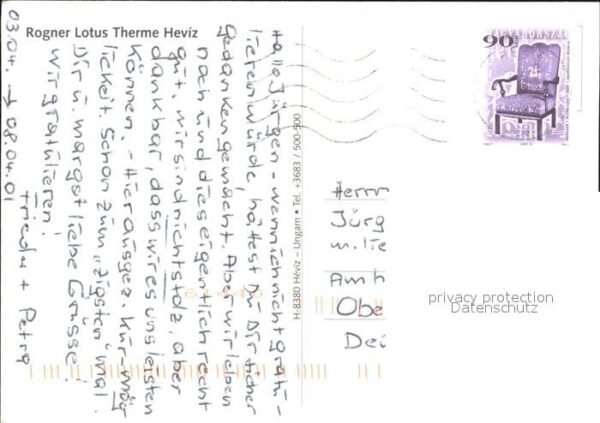 Rogner Lotus Therme Hevíz
03.04. → 08.04.01
Hallo Jürgen - wenn ich nicht gratu-
lieren würde, hättest Du Dir sicher
Gedanken gemacht. Aber wir leben
noch und dies eigentlich recht
gut, wir sind nicht stolz, aber
dankbar, dass wir es uns leisten
können. - Hier ausgez. Kur-mög
lichkeit. Schon zum "zigsten" mal.
Dir u. Margot liebe Grüsse!
Wir gratulieren!
Frieder + Petra
H-8380 Hévíz – Ungarn • Tel. +3683 / 500-500
MAGYARORSZÁG
90
Herrn
Jürg
u. lie
Amh
Obe
Dei
privacy protection
Datenschutz